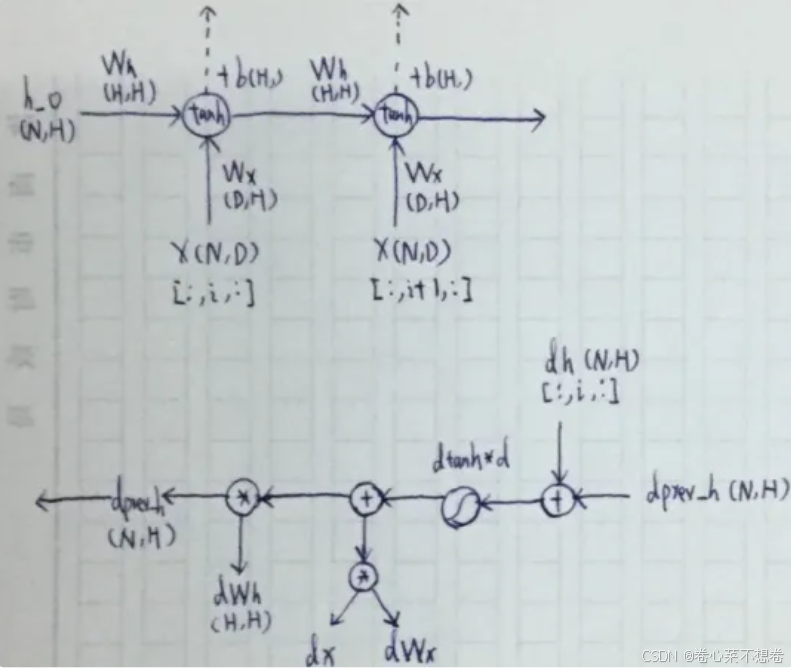 Wh
(H,H)
+b(H,)
Wh
(H,H)
+b(H,)
h_0
(N,H)
tanh
tanh
Wx
(D,H)
Wx
(D,H)
X(N,D)
[:,i,:]
X(N,D)
[:,i+1,:]
dh (N,H)
[:,i,:]
dtanh*d
dprev_h
(N,H)
*
+
+
dprev_h (N,H)
*
dWh
(H,H)
dx
dWx
CSDN @卷心菜不想卷